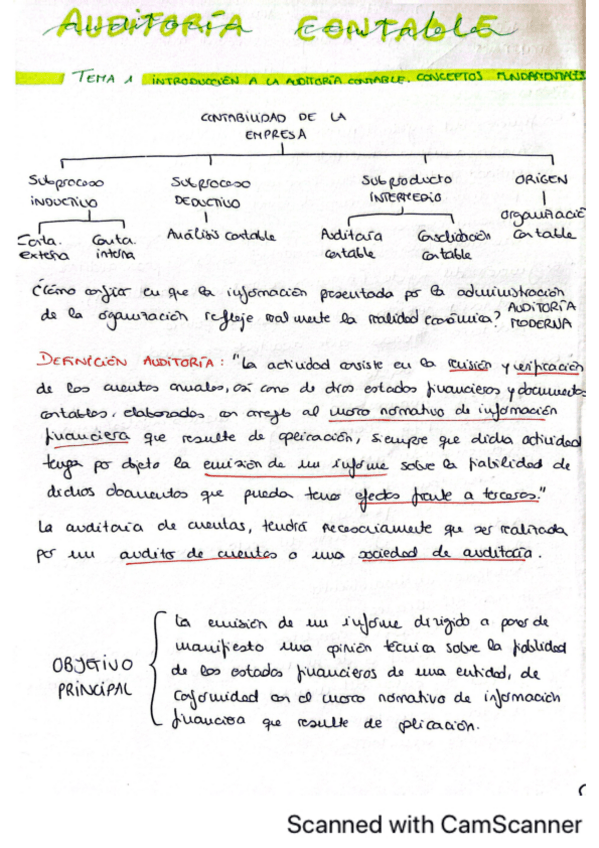 AUDITORÍA CONTABLE
TEMA 1 INTRODUCCIÓN A LA AUDITORÍA CONTABLE. CONCEPTOS FUNDAMENTALES
CONTABILIDAD DE LA
EMPRESA
Subproceso Subproceso Subproducto ORIGEN
INDUCTIVO DEDUCTIVO INTERMEDIO
Conta. Conta. Análisis contable Auditoría Consolidación organizació
externa interna contable contable contable
¿Cómo confiar en que la información presentada por la administración
de la organización refleje realmente la realidad económica? AUDITORÍA
MODERNA
DEFINICIÓN AUDITORÍA: "La actividad consiste en la revisión y verificación
de las cuentas anuales, así como de otros estados financieros y documentos
contables, elaborados con arreglo al marco normativo de información
financiera que resulte de aplicación, siempre que dicha actividad
tenga por objeto la emisión de un informe sobre la fiabilidad de
dichos documentos que pueda tener efectos frente a terceros."
La auditoría de cuentas, tendrá necesariamente que ser realizada
por un auditor de cuentas o una sociedad de auditoría.
OBJETIVO
PRINCIPAL
La emisión de un informe dirigido a poner de
manifiesto una opinión técnica sobre la fiabilidad
de los estados financieros de una entidad, de
conformidad con el marco normativo de información
financiera que resulte de aplicación.
Scanned with CamScanner